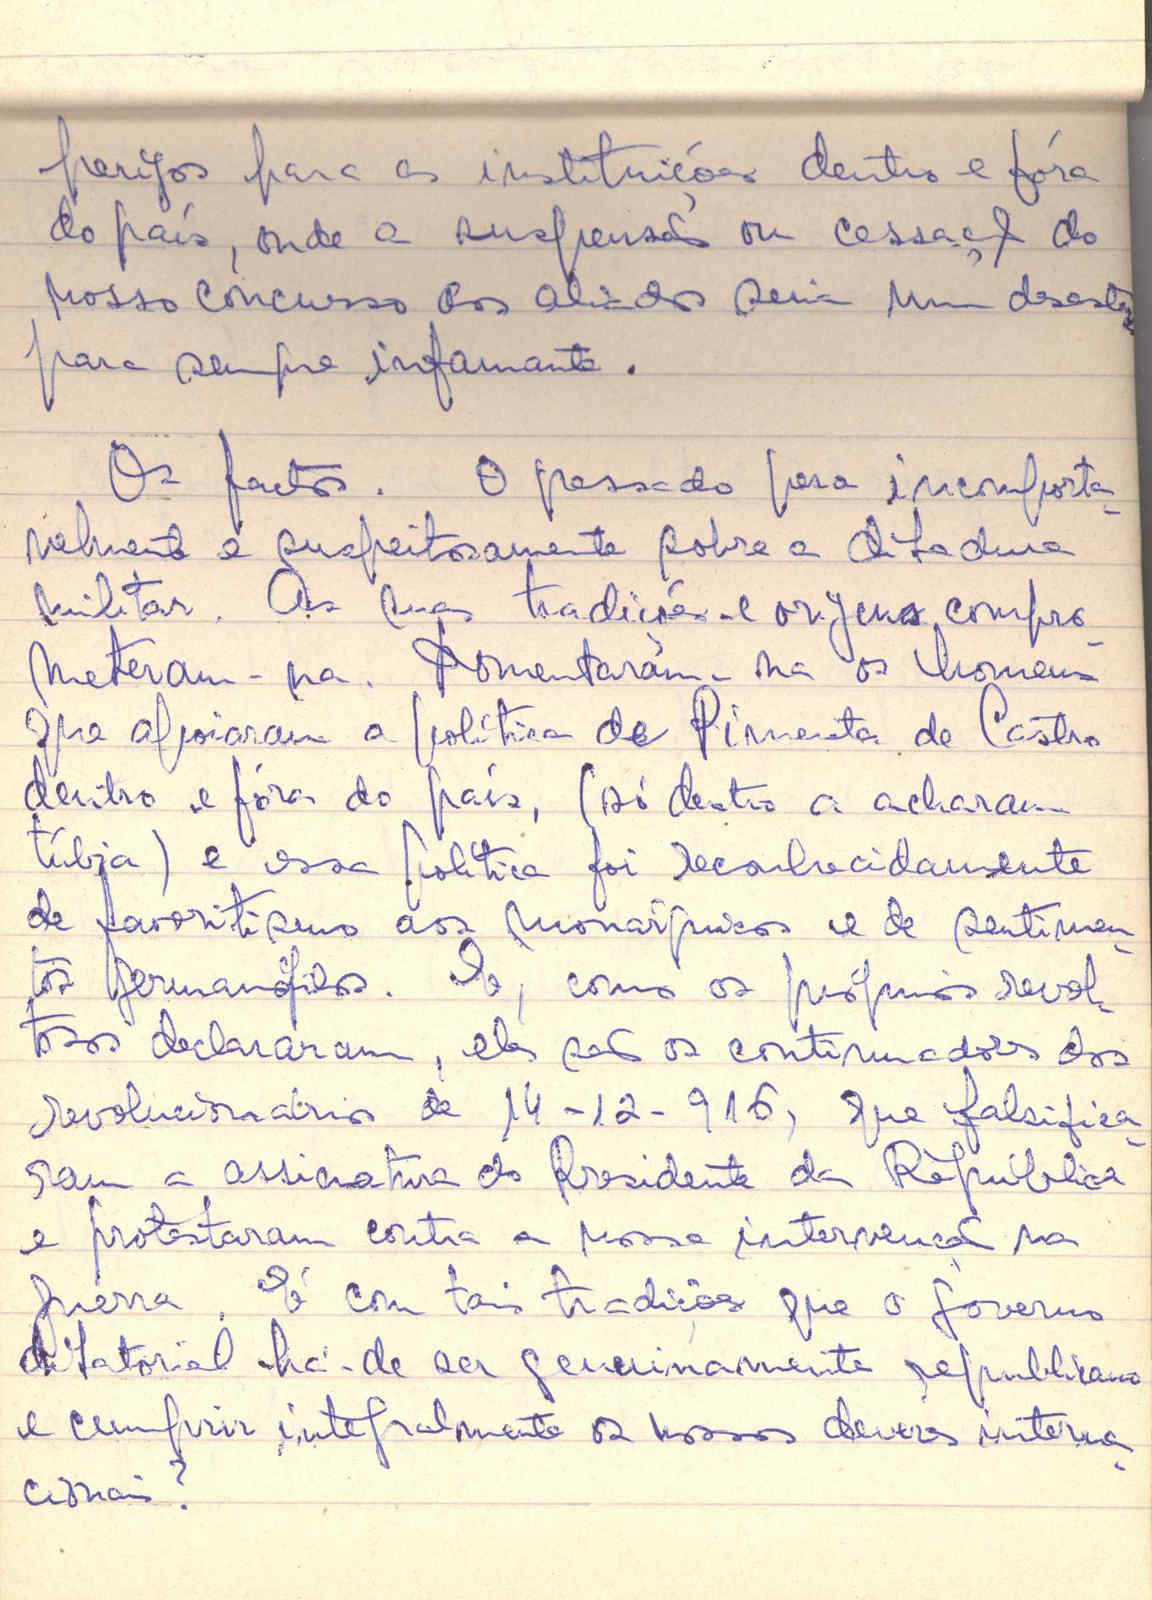 perigos para as instituições dentro e fóra
do país, onde a suspensão ou cessação do
nosso concurso aos aliados seria um desastre
para sempre infamante.
Os factos. O passado pesa incomporta-
velmente e suspeitosamente sobre a ditadura
militar. As suas tradições e origens compro-
meteram-na. Fomentaram-na os homens
que apoiaram a política de Pimenta de Castro
dentro e fóra do país, (só dentro a acharam
túbia) e essa política foi reconhecidamente
de favoritismo aos monárquicos e de sentimen-
tos germanófilos. E, como os próprios revol-
tosos declararam, eles são os continuadores dos
revolucionários de 14-12-916, que falsifica-
ram a assinatura do Presidente da República
e protestaram contra a nossa intervenção na
guerra. É com tais tradições que o governo
ditatorial há-de ser genuinamente republicano
e cumprir integralmente os nossos deveres interna-
cionais?